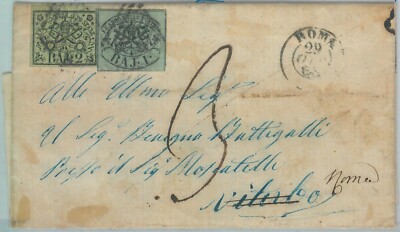 BAJ. 2
BAJ. 1
ROMA
29
Alle Illmo Sig.
Il Sig. Benigna Battegalli
Presso il Sig Moscatelli
Viterbo
Roma
3